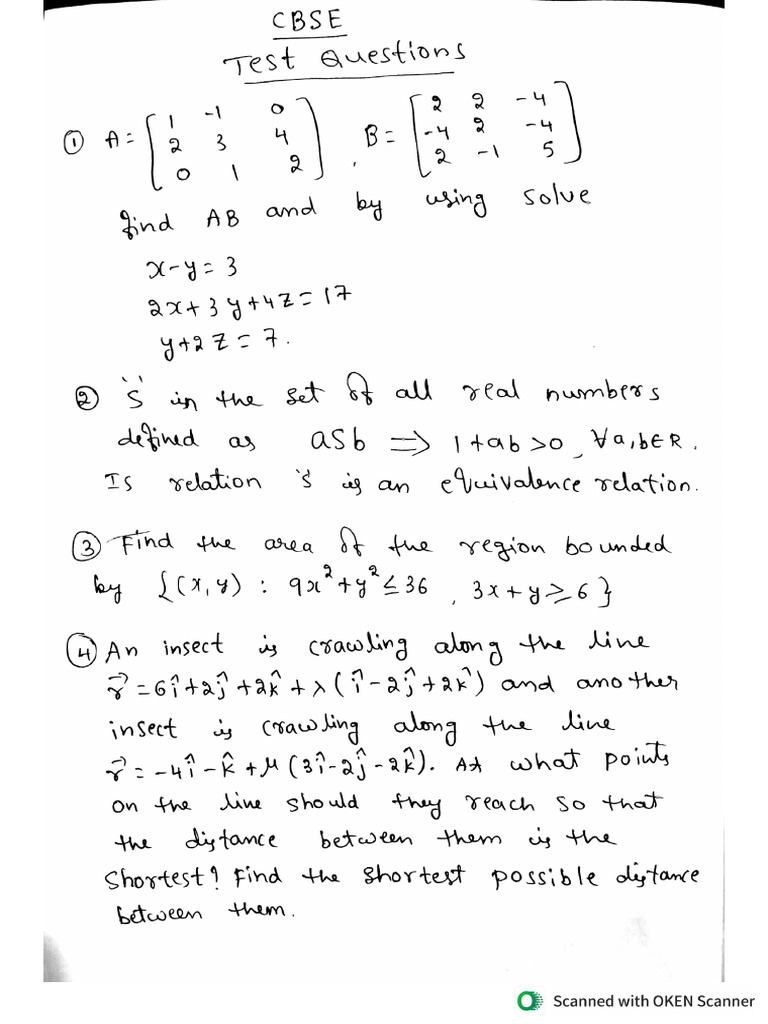 CBSE
Test Questions
① A = [1 -1 0; 2 3 4; 0 1 2], B = [2 2 -4; -4 2 -4; 2 -1 5]
find AB and by using solve
x-y=3
2x+3y+4z=17
y+2z=7.
② 'S' is the set of all real numbers
defined as aSb ⟹ 1+ab>0, ∀a,b∈R.
Is relation 'S' is an equivalence relation.
③ Find the area of the region bounded
by {(x,y) : 9x²+y²≤36, 3x+y≥6}
④ An insect is crawling along the line
r⃗ = 6î+2ĵ+2k̂+λ(î-2ĵ+2k̂) and another
insect is crawling along the line
r⃗ = -4î-k̂+μ(3î-2ĵ-2k̂). At what points
on the line should they reach so that
the distance between them is the
shortest? Find the shortest possible distance
between them.
Scanned with OKEN Scanner